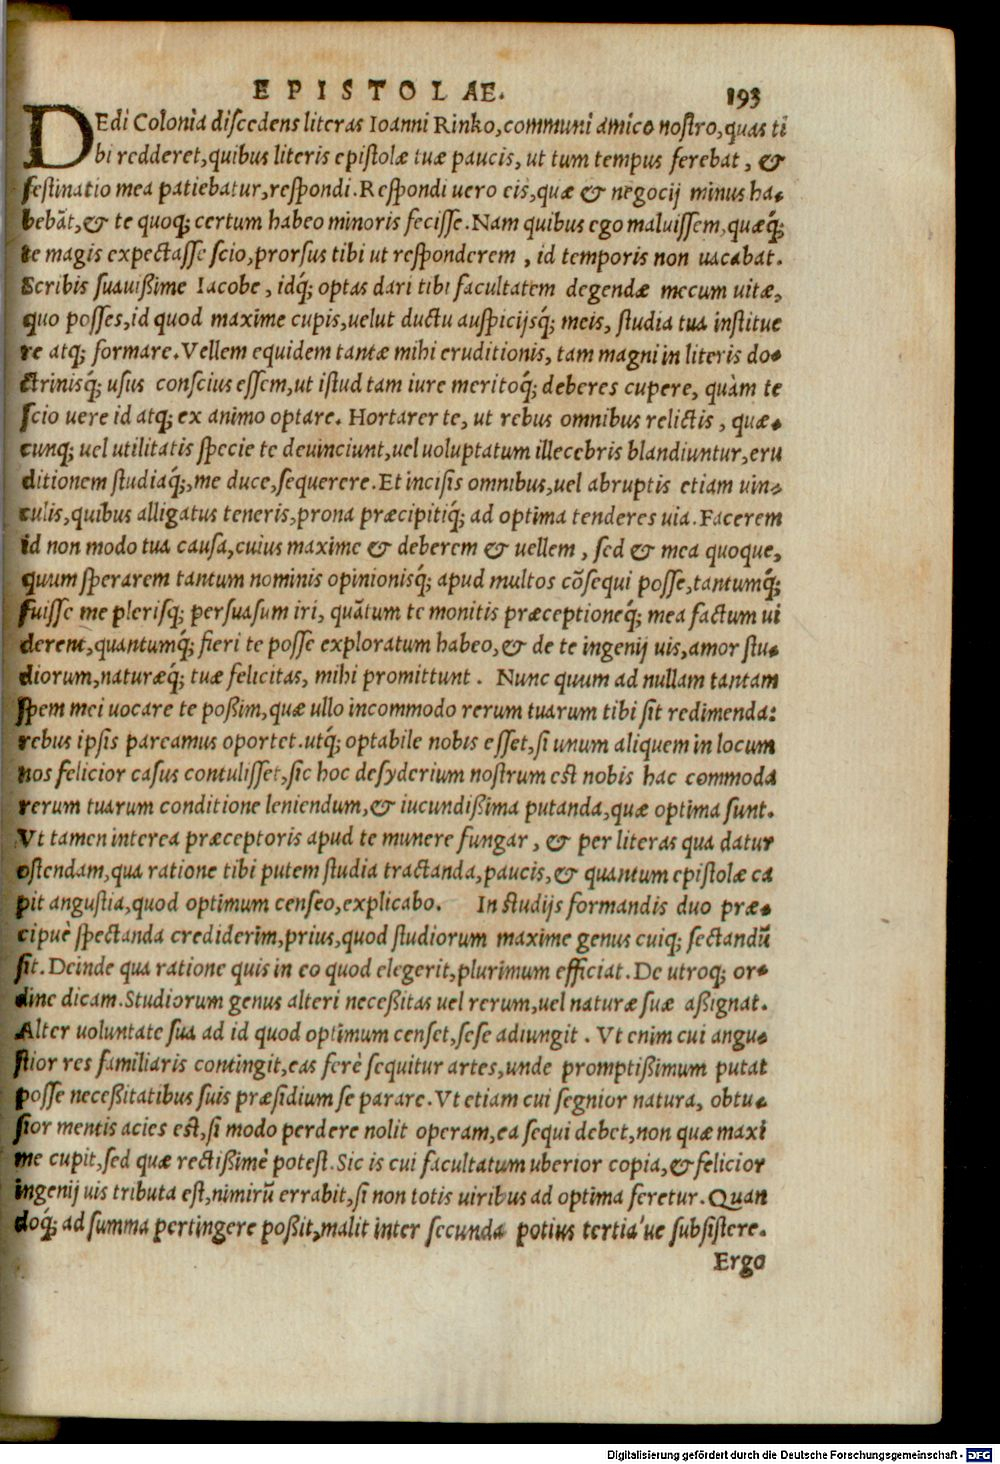 EPISTOLAE. 193
DEdi Colonia discedens literas Ioanni Rinko, communi amico nostro, quas ti
bi redderet, quibus literis epistolæ tuæ paucis, ut tum tempus ferebat, &
festinatio mea patiebatur, respondi. Respondi uero eis, quæ & negocij minus ha-
bebāt, & te quoq; certum habeo minoris fecisse. Nam quibus ego maluissem, quæq́;
te magis expectasse scio, prorsus tibi ut responderem, id temporis non uacabat.
Scribis suauißime Iacobe, idq́; optas dari tibi facultatem degendæ mecum uitæ,
quo posses, id quod maxime cupis, uelut ductu auspicijsq́; meis, studia tua institue
re atq; formare. Vellem equidem tantæ mihi eruditionis, tam magni in literis do-
ctrinisq́; usus conscius essem, ut istud tam iure meritoq́; deberes cupere, quàm te
scio uere id atq; ex animo optare. Hortarer te, ut rebus omnibus relictis, quæ-
cunq; uel utilitatis specie te deuinciunt, uel uoluptatum illecebris blandiuntur, eru
ditionem studiaq́;, me duce, sequerere. Et incisis omnibus, uel abruptis etiam uin-
culis, quibus alligatus teneris, prona præcipitiq́; ad optima tenderes uia. Facerem
id non modo tua causa, cuius maxime & deberem & uellem, sed & mea quoque,
quum sperarem tantum nominis opinionisq́; apud multos cōsequi posse, tantumq́;
fuisse me plerisq; persuasum iri, quātum te monitis præceptioneq́; mea factum ui
derent, quantumq́; fieri te posse exploratum habeo, & de te ingenij uis, amor stu-
diorum, naturæq́; tuæ felicitas, mihi promittunt. Nunc quum ad nullam tantam
spem mei uocare te poßim, quæ ullo incommodo rerum tuarum tibi sit redimenda:
rebus ipsis pareamus oportet. utq́; optabile nobis esset, si unum aliquem in locum
nos felicior casus contulisset, sic hoc desyderium nostrum est nobis hac commoda
rerum tuarum conditione leniendum, & iucundißima putanda, quæ optima sunt.
Vt tamen interea præceptoris apud te munere fungar, & per literas qua datur
ostendam, qua ratione tibi putem studia tractanda, paucis, & quantum epistolæ ca
pit angustia, quod optimum censeo, explicabo. In studijs formandis duo præ-
cipuè spectanda crediderim, prius, quod studiorum maxime genus cuiq; sectandū
sit. Deinde qua ratione quis in eo quod elegerit, plurimum efficiat. De utroq; or-
dine dicam. Studiorum genus alteri neceßitas uel rerum, uel naturæ suæ aßignat.
Alter uoluntate sua ad id quod optimum censet, sese adiungit. Vt enim cui angu-
stior res familiaris contingit, eas ferè sequitur artes, unde promptißimum putat
posse neceßitatibus suis præsidium se parare. Vt etiam cui segnior natura, obtu-
sior mentis acies est, si modo perdere nolit operam, ea sequi debet, non quæ maxi
me cupit, sed quæ rectißimè potest. Sic is cui facultatum uberior copia, & felicior
ingenij uis tributa est, nimirū errabit, si non totis uiribus ad optima feretur. Quan
doq́; ad summa pertingere poßit, malit inter secunda potius tertia'ue subsistere.
Ergo
Digitalisierung gefördert durch die Deutsche Forschungsgemeinschaft - DFG